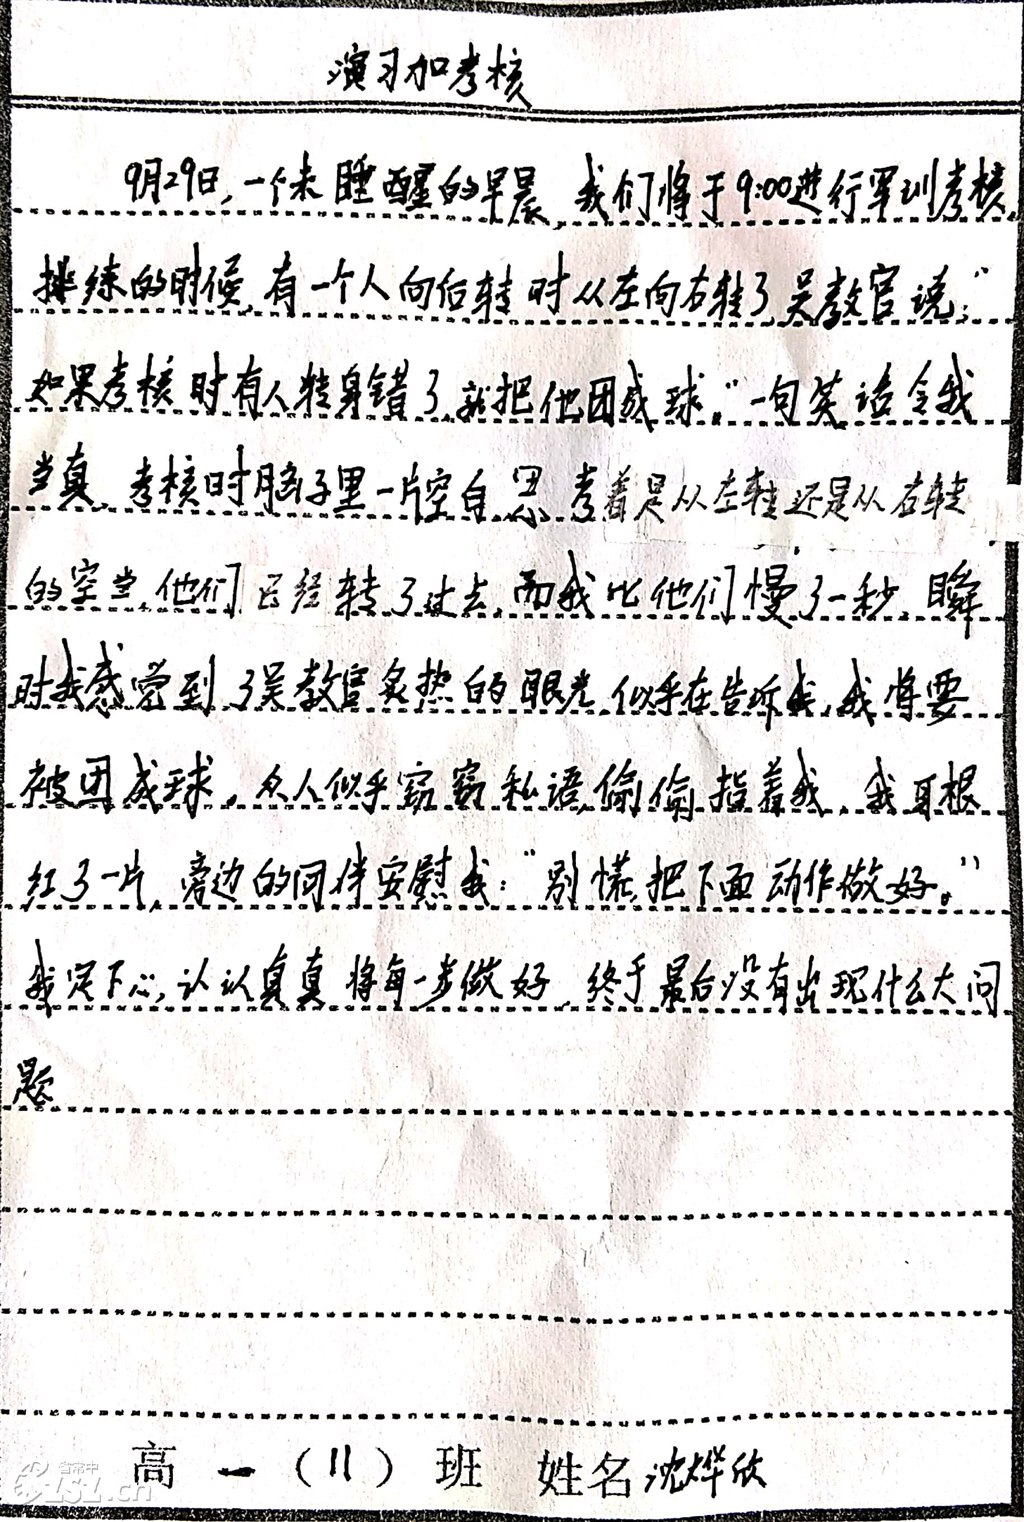 演习加考核
9月29日,一个未睡醒的早晨,我们将于9:00进行军训考核,
排练的时候,有一个人向后转时从左向右转了,吴教官说:“
如果考核时有人转身错了,就把他团成球。”一句笑话令我
当真,考核时脑子里一片空白,思考着是从左转还是从右转
的空当,他们已经转了过去,而我比他们慢了一秒,瞬
时我感觉到了吴教官炙热的眼光,似乎在告诉我,我将要
被团成球,众人似乎窃窃私语,偷偷指着我,我耳根
红了一片,旁边的同伴安慰我:“别慌,把下面动作做好。”
我定下心,认认真真将每一步做好,终于最后没有出现什么大问
题
高一(11)班 姓名沈烨欣
省常中